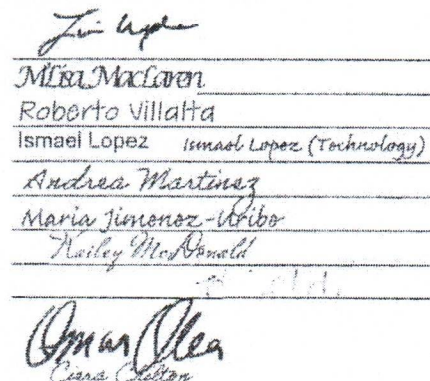 MLisa MacLaren
Roberto Villalta
Ismael Lopez Ismael Lopez (Technology)
Andrea Martinez
Maria Jimenez-Uribe
Kailey McDonald
Omar Olea
Ciara